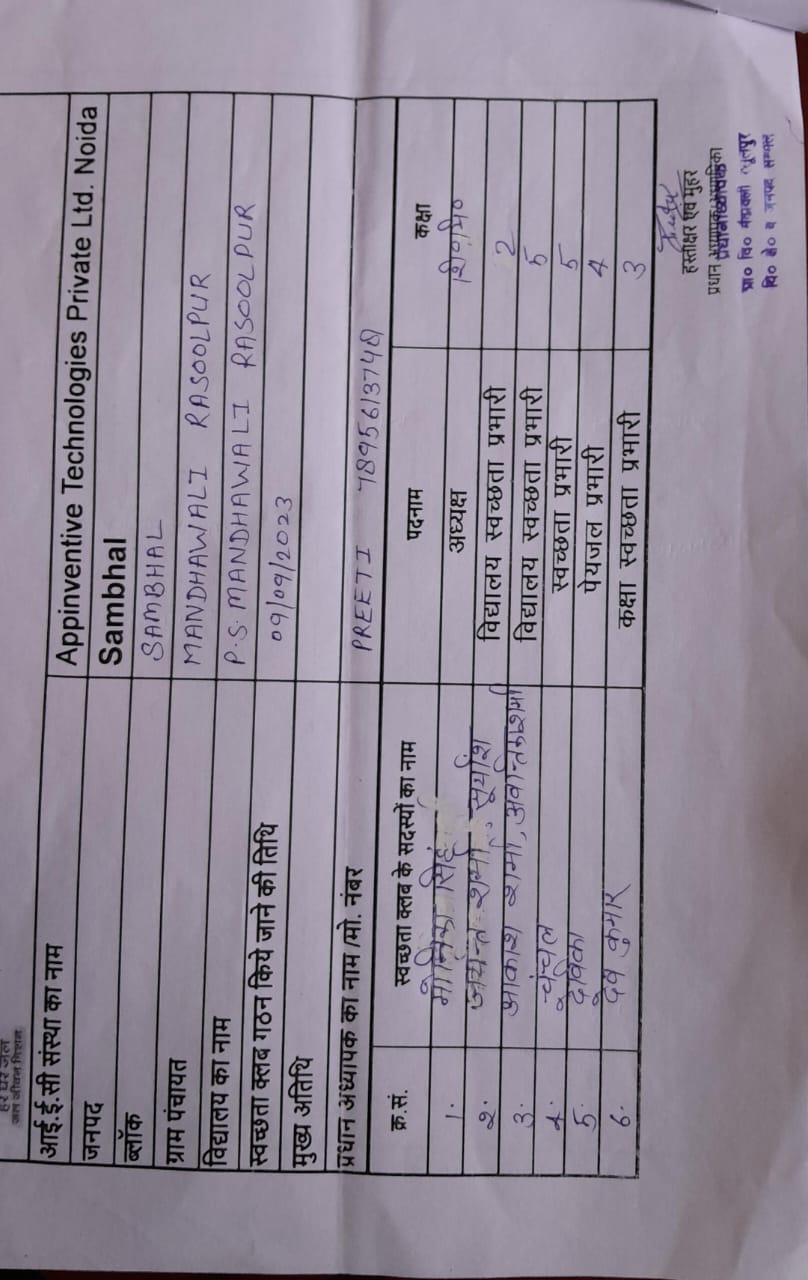 हर घर जल
जल जीवन मिशन
आई.ई.सी संस्था का नाम Appinventive Technologies Private Ltd. Noida
जनपद Sambhal
ब्लॉक SAMBHAL
ग्राम पंचायत MANDHAWALI RASOOLPUR
विद्यालय का नाम P.S. MANDHAWALI RASOOLPUR
स्वच्छता क्लब गठन किये जाने की तिथि 09/09/2023
मुख्य अतिथि
प्रधान अध्यापक का नाम /मो. नंबर PREETI 7895613748
क्र.सं. स्वच्छता क्लब के सदस्यों का नाम पदनाम कक्षा
1. मोनिका सिंह अध्यक्ष शि०मि०
2. जयन्त शर्मा सूर्यांश विद्यालय स्वच्छता प्रभारी 2
3. आकाश शर्मा, अवन्तिका शर्मा विद्यालय स्वच्छता प्रभारी 5
4. चंचल स्वच्छता प्रभारी 5
5. देविका पेयजल प्रभारी 4
6. देव कुमार कक्षा स्वच्छता प्रभारी 3
हस्ताक्षर एवं मुहर
प्रधान अध्यापक/अध्यापिका
प्रधानाध्यापक
प्रा० वि० मंढावली रसूलपुर
वि० क्षे० व जनपद सम्भल